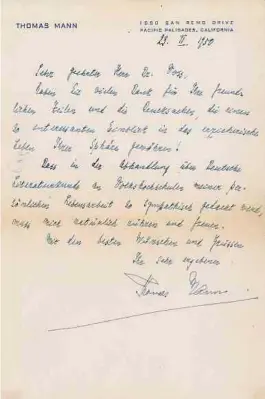 THOMAS MANN
1550 SAN REMO DRIVE
PACIFIC PALISADES, CALIFORNIA
Sehr geehrter Herr Dr.
haben Sie vielen Dank für Ihre freund-
lichen Zeilen und die Drucksachen, die einen
so interessanten Einblick in das erzieherische
Leben Ihrer Sphäre gewähren!
Dass in der Abhandlung über Deutsche
Literaturkunde an Volkshochschulen meiner per-
sönlichen Lebensarbeit so sympathisch gedacht wird,
muss mich natürlich rühren und freuen.
Mit den besten Wünschen und Grüssen
Ihr sehr ergebener
Thomas Mann